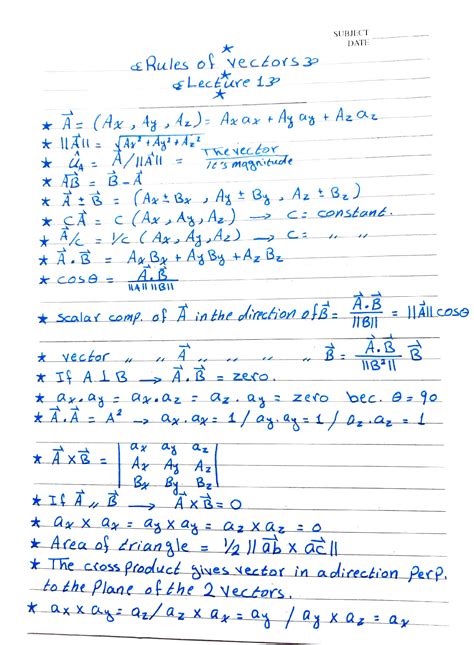 SUBJECT
DATE
Rules of vectors
Lecture 1
* A⃗ = (Ax, Ay, Az) = Ax ax + Ay ay + Az az
* ||A⃗|| = √(Ax² + Ay² + Az²)
* û_A = A⃗/||A⃗|| = The vector / it's magnitude
* AB⃗ = B⃗ - A⃗
* A⃗ ± B⃗ = (Ax ± Bx, Ay ± By, Az ± Bz)
* CA⃗ = C (Ax, Ay, Az) → C = constant.
* A⃗/c = 1/c (Ax, Ay, Az) → C = 〃 〃
* A⃗ . B⃗ = Ax Bx + Ay By + Az Bz
* cosθ = A⃗.B⃗ / ||A|| ||B||
* scalar comp. of A⃗ in the direction of B⃗ = A⃗.B⃗ / ||B|| = ||A⃗|| cosθ
* vector 〃 〃 A⃗ 〃 〃 〃 〃 B⃗ = A⃗.B⃗ / ||B²|| B⃗
* If A ⊥ B → A⃗.B⃗ = zero.
* ax.ay = ax.az = az.ay = zero bec. θ = 90
* A⃗.A⃗ = A² → ax.ax = 1 / ay.ay = 1 / az.az = 1
* A⃗ x B⃗ = | ax ay az |
| Ax Ay Az |
| Bx By Bz |
* If A⃗ // B⃗ → A⃗ x B⃗ = 0
* ax x ax = ay x ay = az x az = 0
* Area of triangle = 1/2 ||ab⃗ x ac⃗||
* The cross product gives vector in a direction perp.
to the plane of the 2 vectors.
* ax x ay = az / az x ax = ay / ay x az = ax